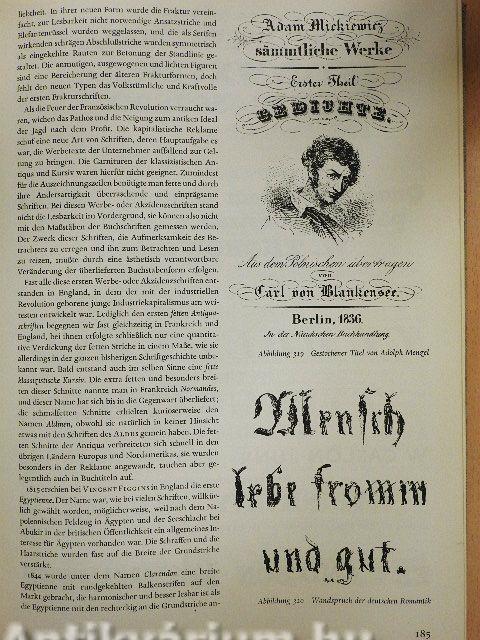 liebtheit. In ihrer neuen Form wurde die Fraktur verein-
facht, zur Lesbarkeit nicht notwendige Ansatzstriche und
Elefantenrüssel wurden weggelassen, und die als Serifen
wirkenden schrägen Abschlußstriche wurden symmetrisch
als eingekehlte Rauten zur Betonung der Standlinie ge-
staltet. Die anmutigen, ausgewogenen und lichten Figuren
sind eine Bereicherung der älteren Frakturformen, doch
fehlt den neuen Typen das Volkstümliche und Kraftvolle
der ersten Frakturschriften.
Als die Feuer der Französischen Revolution verraucht wa-
ren, wichen das Pathos und die Neigung zum antiken Ideal
der Jagd nach dem Profit. Die kapitalistische Reklame
schuf eine neue Art von Schriften, deren Hauptaufgabe es
war, die Werbetexte der Unternehmer auffallend zur Gel-
tung zu bringen. Die Garnituren der klassizistischen An-
tiqua und Kursiv waren hierfür nicht geeignet. Zumindest
für die Auszeichnungszeilen benötigte man fette und durch
ihre Andersartigkeit überraschende und einprägsame
Schriften. Bei diesen Werbe- oder Akzidenzschriften stand
nicht die Lesbarkeit im Vordergrund, sie können also nicht
mit den Maßstäben der Buchschriften gemessen werden.
Der Zweck dieser Schriften, die Aufmerksamkeit des Be-
trachters zu erregen und ihn zum Betrachten und Lesen
zu reizen, mußte durch eine ästhetisch verantwortbare
Veränderung der überlieferten Buchstabenform erfolgen.
Fast alle diese ersten Werbe- oder Akzidenzschriften ent-
standen in England, in dem der mit der industriellen
Revolution geborene junge Industriekapitalismus am wei-
testen entwickelt war. Lediglich den ersten fetten Antiqua-
schriften begegnen wir fast gleichzeitig in Frankreich und
England, bei ihnen erfolgte schließlich nur eine quantita-
tive Verdickung der fetten Striche in einem Maße, wie sie
allerdings in der ganzen bisherigen Schriftgeschichte unbe-
kannt war. Bald entstand auch im selben Sinne eine fette
klassizistische Kursiv. Die extra fetten und besonders brei-
ten dieser Schnitte nannte man in Frankreich Normandes,
und dieser Name hat sich bis in die Gegenwart überliefert;
die schmalfetten Schnitte erhielten kurioserweise den
Namen Aldinen, obwohl sie natürlich in keiner Hinsicht
etwas mit den Schriften des ALDUS gemein haben. Die fet-
ten Schnitte der Antiqua verbreiteten sich schnell in den
übrigen Ländern Europas und Nordamerikas, sie wurden
besonders in der Reklame angewandt, tauchen aber ge-
legentlich auch in Buchtiteln auf.
1815 erschien bei VINCENT FIGGINS in England die erste
Egyptienne. Der Name war, wie bei vielen Schriften, willkür-
lich gewählt worden, möglicherweise, weil nach dem Na-
poleonischen Feldzug in Ägypten und der Seeschlacht bei
Abukir in der britischen Öffentlichkeit ein allgemeines In-
teresse für Ägypten vorhanden war. Die Schraffen und die
Haarstriche wurden fast auf die Breite der Grundstriche
verstärkt.
1844 wurde unter dem Namen Clarendon eine breite
Egyptienne mit rundgekehlten Balkenserifen auf den
Markt gebracht, die harmonischer und besser lesbar ist als
die Egyptienne mit den rechteckig an die Grundstriche an-
Adam Mickiewicz
sämmtliche Werke
Erster Theil
GEDICHTE.
Aus dem Polnischen übertragen
von
Carl von Blankensee.
Berlin, 1836.
In der Nauckschen Buchhandlung.
Abbildung 319 Gestochener Titel von Adolph Menzel
Mensch
lebe fromm
und gut.
Abbildung 320 Wandspruch der deutschen Romantik
185